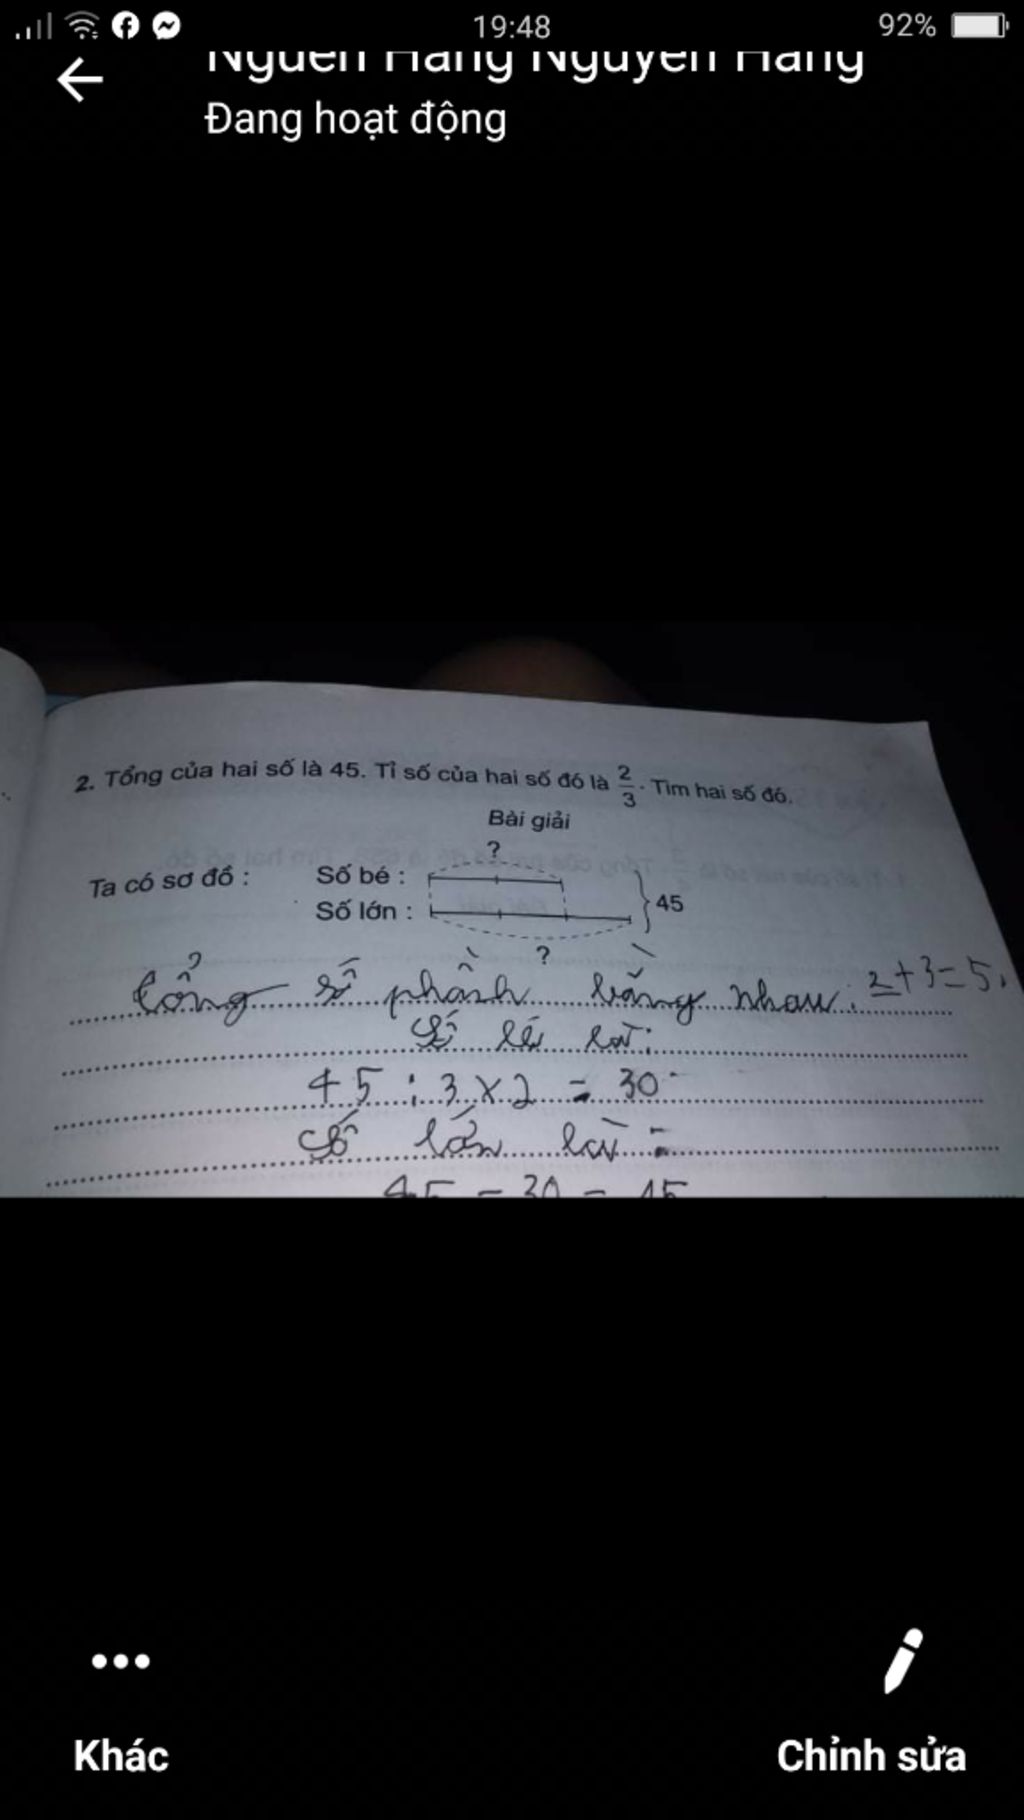 19:48
92%
Nguen Hang Nguyen Hang
Đang hoạt động
2. Tổng của hai số là 45. Tỉ số của hai số đó là 2/3. Tìm hai số đó.
Bài giải
?
Ta có sơ đồ : Số bé :
Số lớn : 45
?
Tổng số phần bằng nhau: 2+3=5.
Số bé là:
45 : 3 x 2 = 30
Số lớn là :
45 - 30 = 15
Khác
Chỉnh sửa